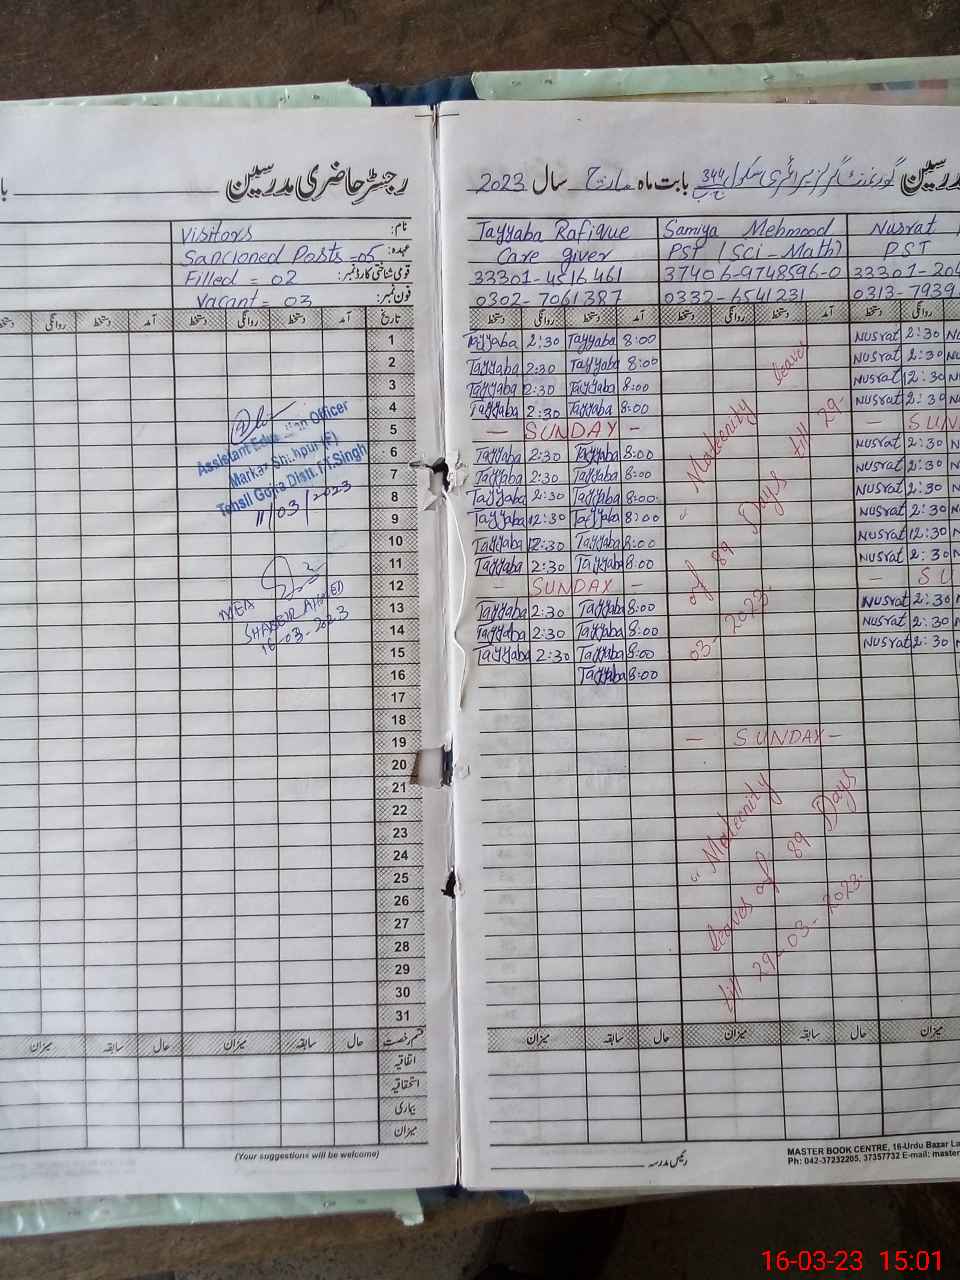 رجسٹر حاضری مدرسین
Visitors
نام:
Sancioned Posts -05
عہدہ:
Filled = 02
قومی شناختی کارڈ نمبر:
Vacant = 03
فون نمبر:
روانگی دستخط آمد دستخط روانگی دستخط آمد تاریخ
1
2
3
4
5
6
7
8
9
10
11
12
13
14
15
16
17
18
19
20
21
22
23
24
25
26
27
28
29
30
31
Assistant Education Officer
Tehsil Gojra Distt. T.T.Singh
11/03/2023
MEA
16-03-2023
میزان سابقہ حال میزان سابقہ حال قسم رخصت
اتفاقیہ
استحقاقیہ
بیماری
میزان
(Your suggestions will be welcome)
مدرسین گورنمنٹ گرلز پرائمری سکول 344 بابت ماہ مارچ سال 2023
Tayyaba Rafique Samiya Mehmood Nusrat
Care giver PST (Sci-Math) PST
33301-4516461 37406-9748596-0 33301-204
0302-7061387 0332-6541231 0313-7939
دستخط روانگی دستخط آمد دستخط روانگی دستخط آمد دستخط روانگی
Tayyaba 2:30 Tayyaba 8:00 Nusrat 2:30
Tayyaba 2:30 Tayyaba 8:00 Nusrat 2:30
Tayyaba 2:30 Tayyaba 8:00 Nusrat 12:30
Tayyaba 2:30 Tayyaba 8:00 Nusrat 2:30
- SUNDAY - - SUN
Tayyaba 2:30 Tayyaba 8:00 Nusrat 2:30
Tayyaba 2:30 Tayyaba 8:00 Nusrat 2:30
Tayyaba 2:30 Tayyaba 8:00 Nusrat 2:30
Tayyaba 12:30 Tayyaba 8:00 Nusrat 2:30
Tayyaba 12:30 Tayyaba 8:00 Nusrat 12:30
Tayyaba 2:30 Tayyaba 8:00 Nusrat 2:30
- SUNDAY - - SU
Tayyaba 2:30 Tayyaba 8:00 Nusrat 2:30
Tayyaba 2:30 Tayyaba 8:00 Nusrat 2:30
Tayyaba 2:30 Tayyaba 8:00 Nusrat 2:30
Tayyaba 8:00
" Mateenity leaves
of 89 Days till 29-
03-2023.
- SUNDAY -
" Mateenity
leaves of 89 Days
till 29-03-2023.
میزان سابقہ حال میزان سابقہ حال میزان
رئیس مدرسہ
MASTER BOOK CENTRE, 16-Urdu Bazar La
Ph: 042-37232205, 37357732 E-mail: master
16-03-23 15:01